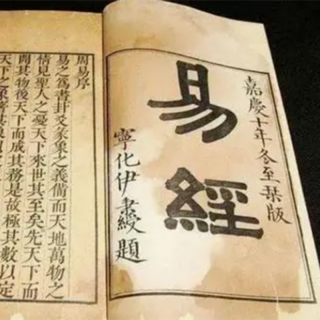 嘉慶十年冬至栞版
易經
寧化伊秉綬題
周易序
易之爲書卦爻彖象之義備而天地萬物之
情見聖人之憂天下來世其至矣先天下而
開其物後天下而成其務是故極其數以定
天下之象著其象以定